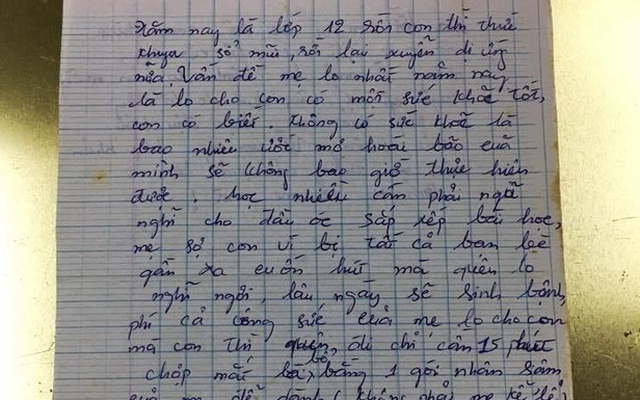 Năm nay là lớp 12 rồi con thì thức
khuya sổ mũi, rồi lại xuyễn dị ứng
nữa. Vấn đề mẹ lo nhất năm nay
là lo cho con có một sức khoẻ tốt,
con có biết. Không có sức khoẻ là
bao nhiêu ước mơ hoài bão của
mình sẽ không bao giờ thực hiện
được. học nhiều cần phải ngủ
nghỉ cho đầu óc sắp xếp bài học,
mẹ sợ con vì bị tất cả bạn bè
gần xa cuốn hút mà quên lo
nghỉ ngơi, lâu ngày sẽ sinh bệnh,
phí cả công sức của mẹ lo cho con
mà con thì quên, dù chỉ cần 15 phút
chớp mắt bằng 1 gói nhân sâm
để dành ( không phải mẹ kể lể